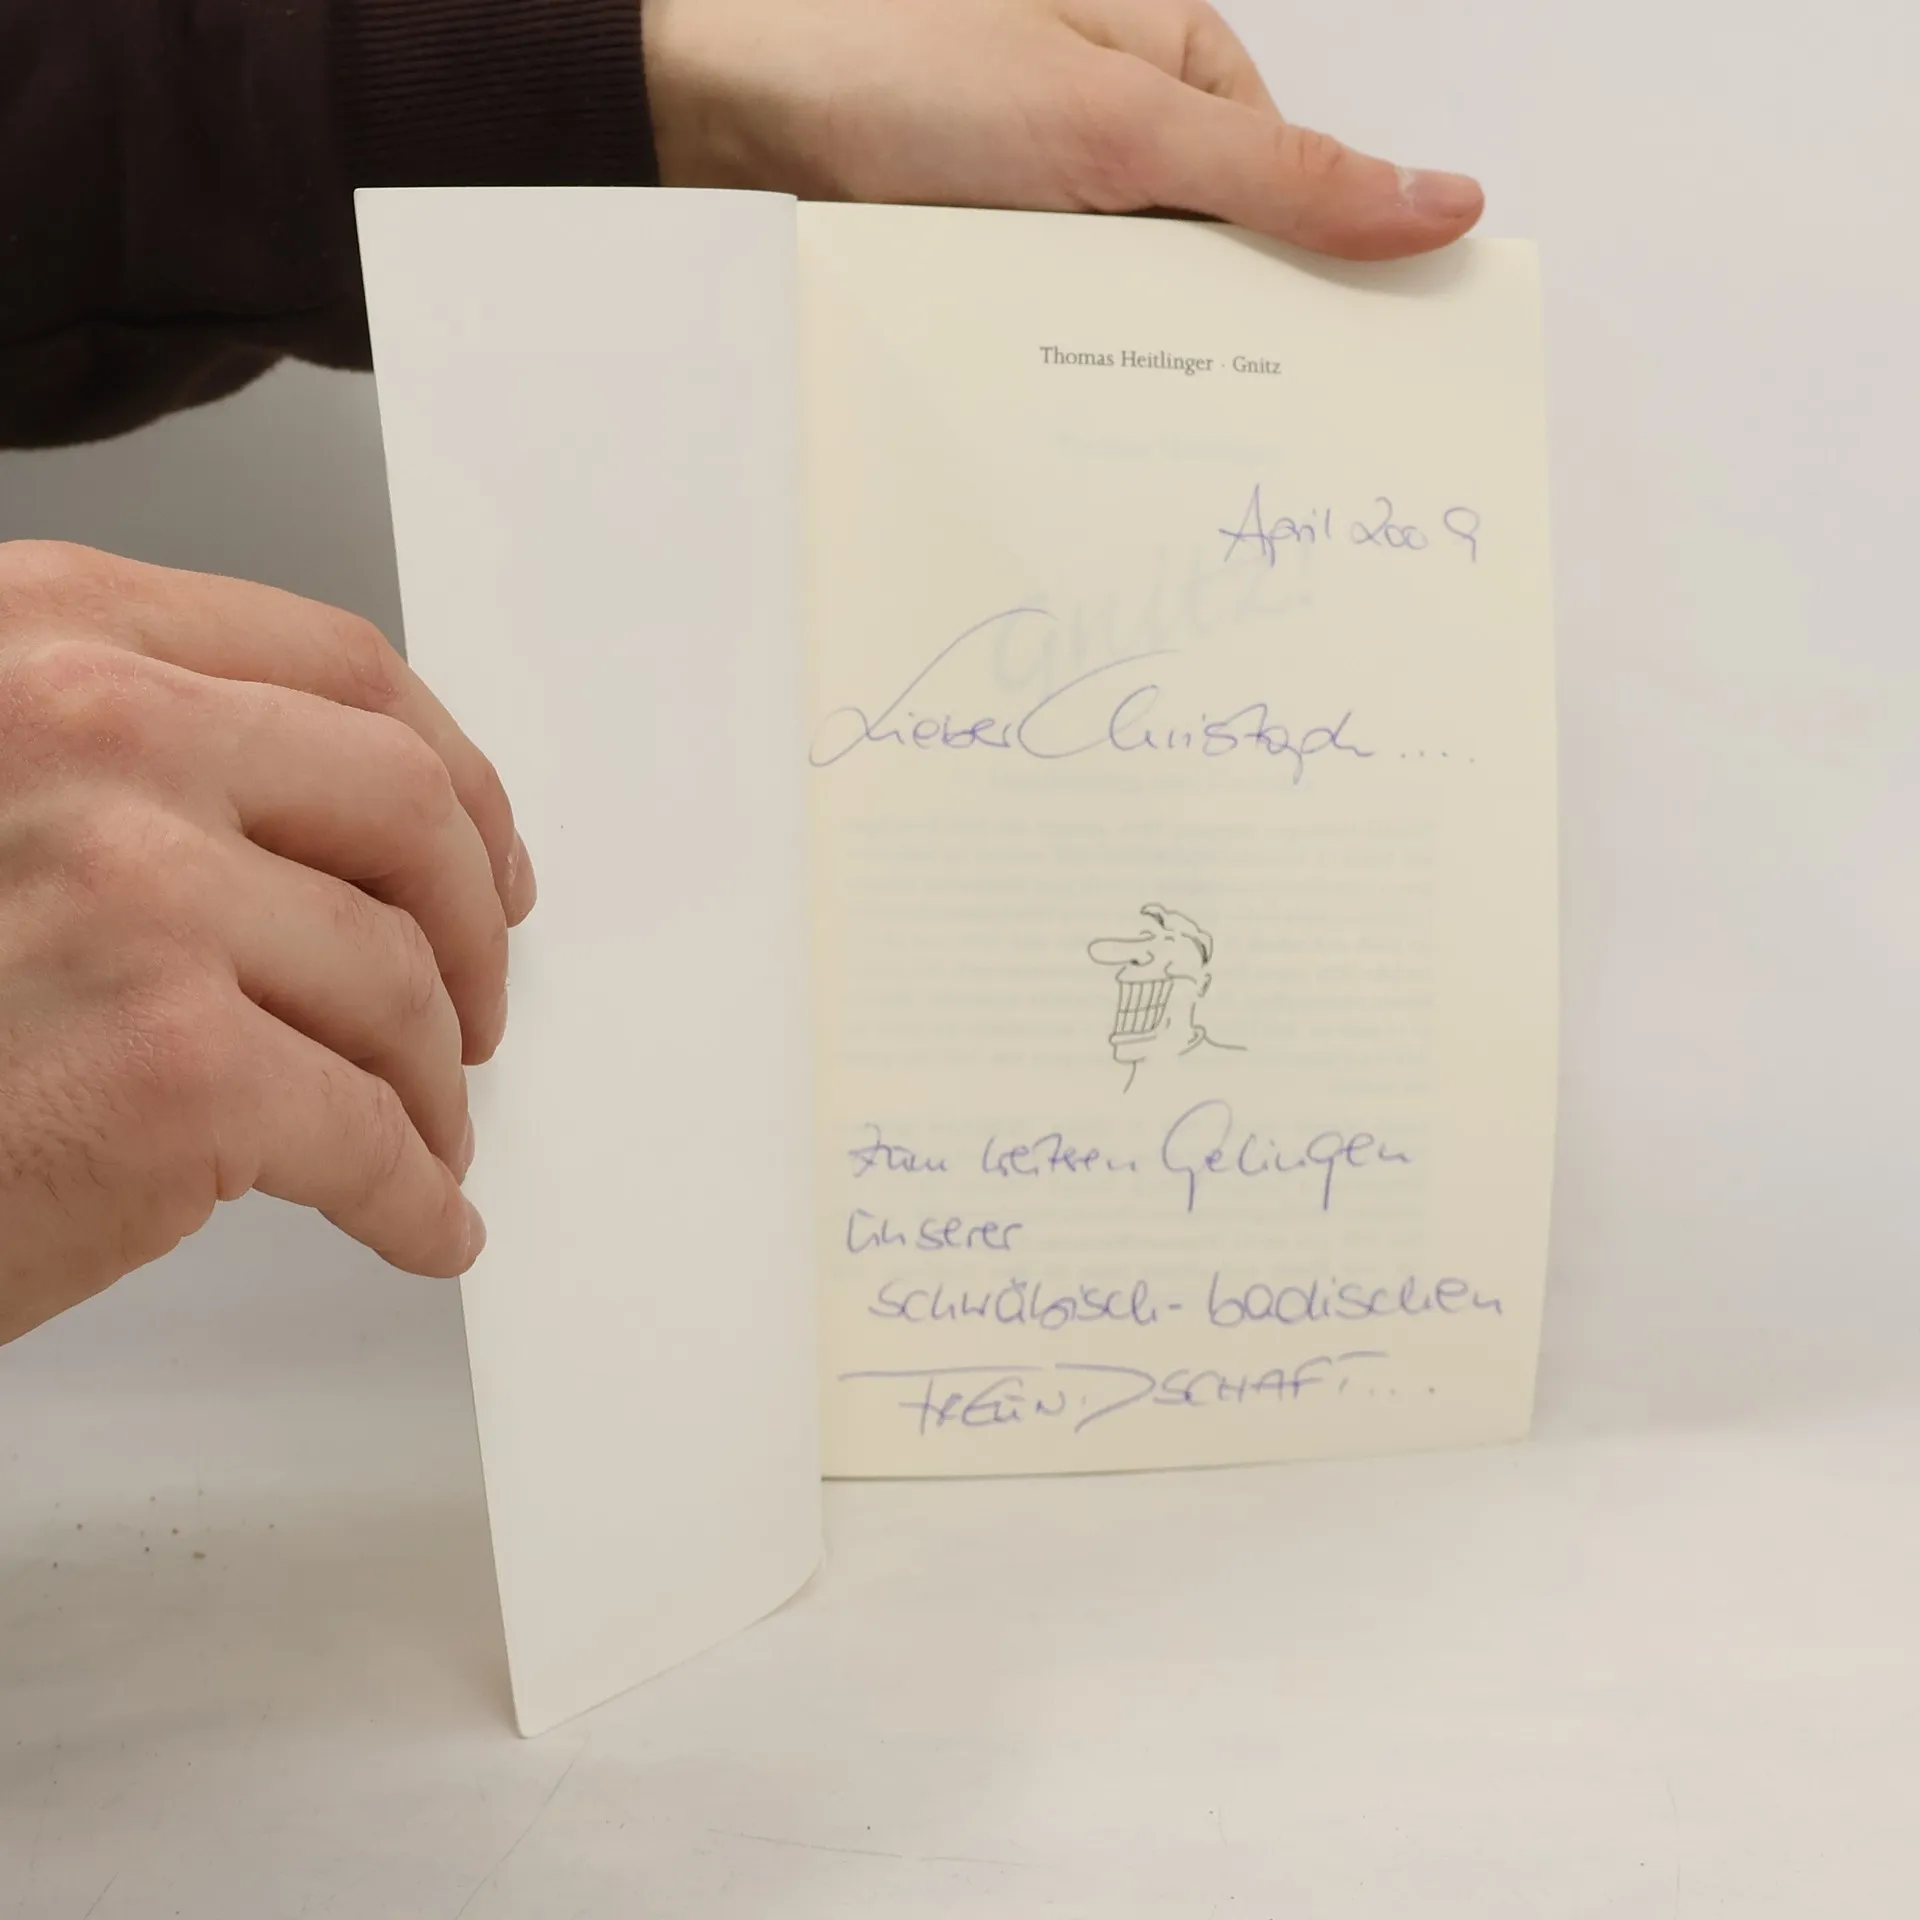 Thomas Heitlinger · Gnitz
April 2009
Gnitz!
Lieber Christoph ....
zum weiteren Gelingen
unserer
schwäbisch-badischen
FREUNDSCHAFT....